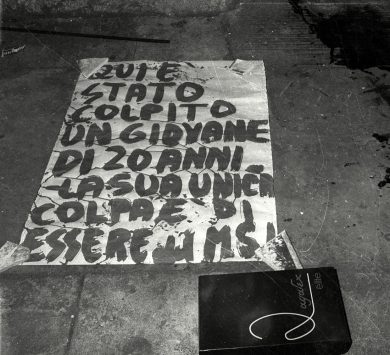 QUI E
STATO
COLPITO
UN GIOVANE
DI 20 ANNI
LA SUA UNICA
COLPA E' DI
ESSERE M.S.I.
elite